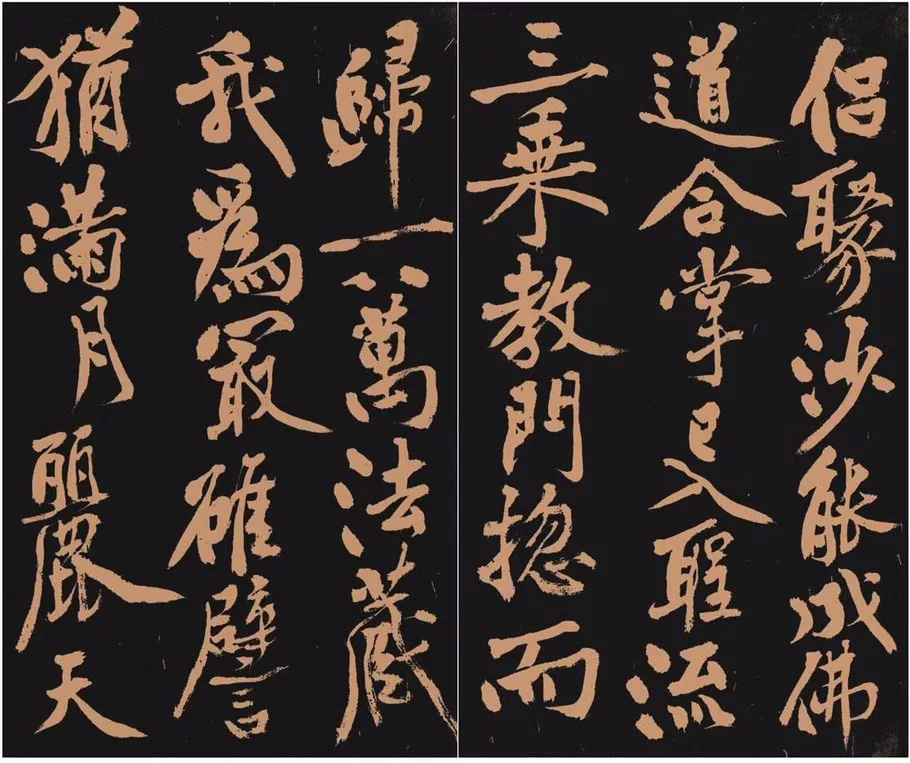 侣聚沙能成佛
道合掌已入聖流
三乗教門揔而
歸一八萬法藏
我為冣碓譬
猶滿月麗天